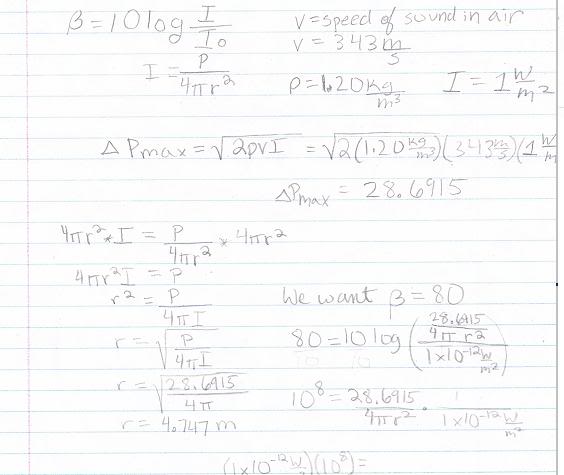 β = 10 log I/I₀
v = speed of sound in air
v = 343 m/s
I = P/4πr²
ρ = 1.20 kg/m³
I = 1 W/m²
ΔPmax = √2ρvI = √2(1.20 kg/m³)(343 m/s)(1 W/m
ΔPmax = 28.6915
4πr² * I = P/4πr² * 4πr²
4πr²I = P
r² = P/4πI
r = √P/4πI
r = √28.6915/4π
r = 4.747 m
We want β = 80
80 = 10 log (28.6915/4πr² / 1x10⁻¹² W/m²)
10 10
10⁸ = 28.6915/4πr² · 1/1x10⁻¹² W/m²
(1x10⁻¹² W/)(10⁸) =